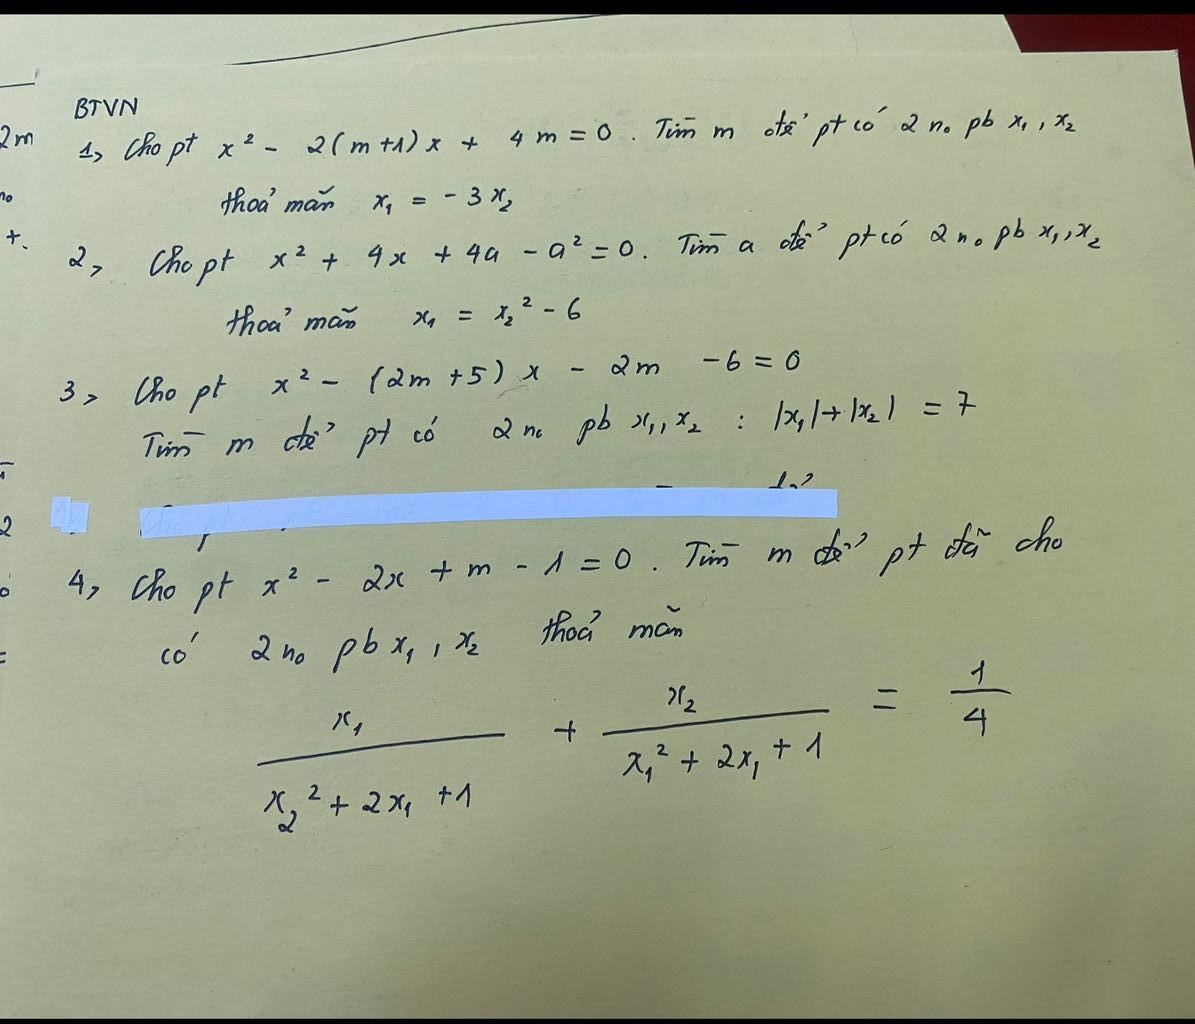 BTVN
1, Cho pt x² - 2(m+1)x + 4m = 0. Tìm m để pt có 2 no pb x₁, x₂
thoả mãn x₁ = -3x₂
2, Cho pt x² + 4x + 4a - a² = 0. Tìm a để pt có 2 no pb x₁, x₂
thoả mãn x₁ = x₂² - 6
3, Cho pt x² - (2m+5)x - 2m - 6 = 0
Tìm m để pt có 2 no pb x₁, x₂ : |x₁| + |x₂| = 7
4, Cho pt x² - 2x + m - 1 = 0. Tìm m để pt đã cho
có 2 no pb x₁, x₂ thoả mãn
x₁/(x₂² + 2x₁ + 1) + x₂/(x₁² + 2x₁ + 1) = 1/4
2m
no
+.
2
=